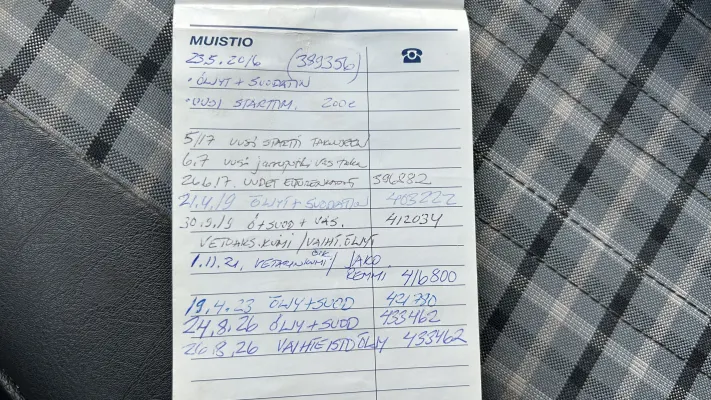 MUISTIO
23.5.2016 (389356)
• ÖLJYT + SUODATIN
• UUSI STARTTIM. 200€
5/17 UUSI STARTTI TAKUUSEEN
6.7 UUSI jarruputki VAS taka
26.6.17. UUDET 396282
21.4.19 ÖLJYT + SUODATIN 403222
30.9.19 Ö+SUOD + VAS. 412034
VETOAKS.KUMI / VAIHT.ÖLJYT
1.11.21, OIK / JAKO
REMMI 416800
19.4.23 ÖLJY+SUOD 421790
24.8.26 ÖLJY+SUOD 433462
26.8.26 VAIHTEISTOÖLJY 433462